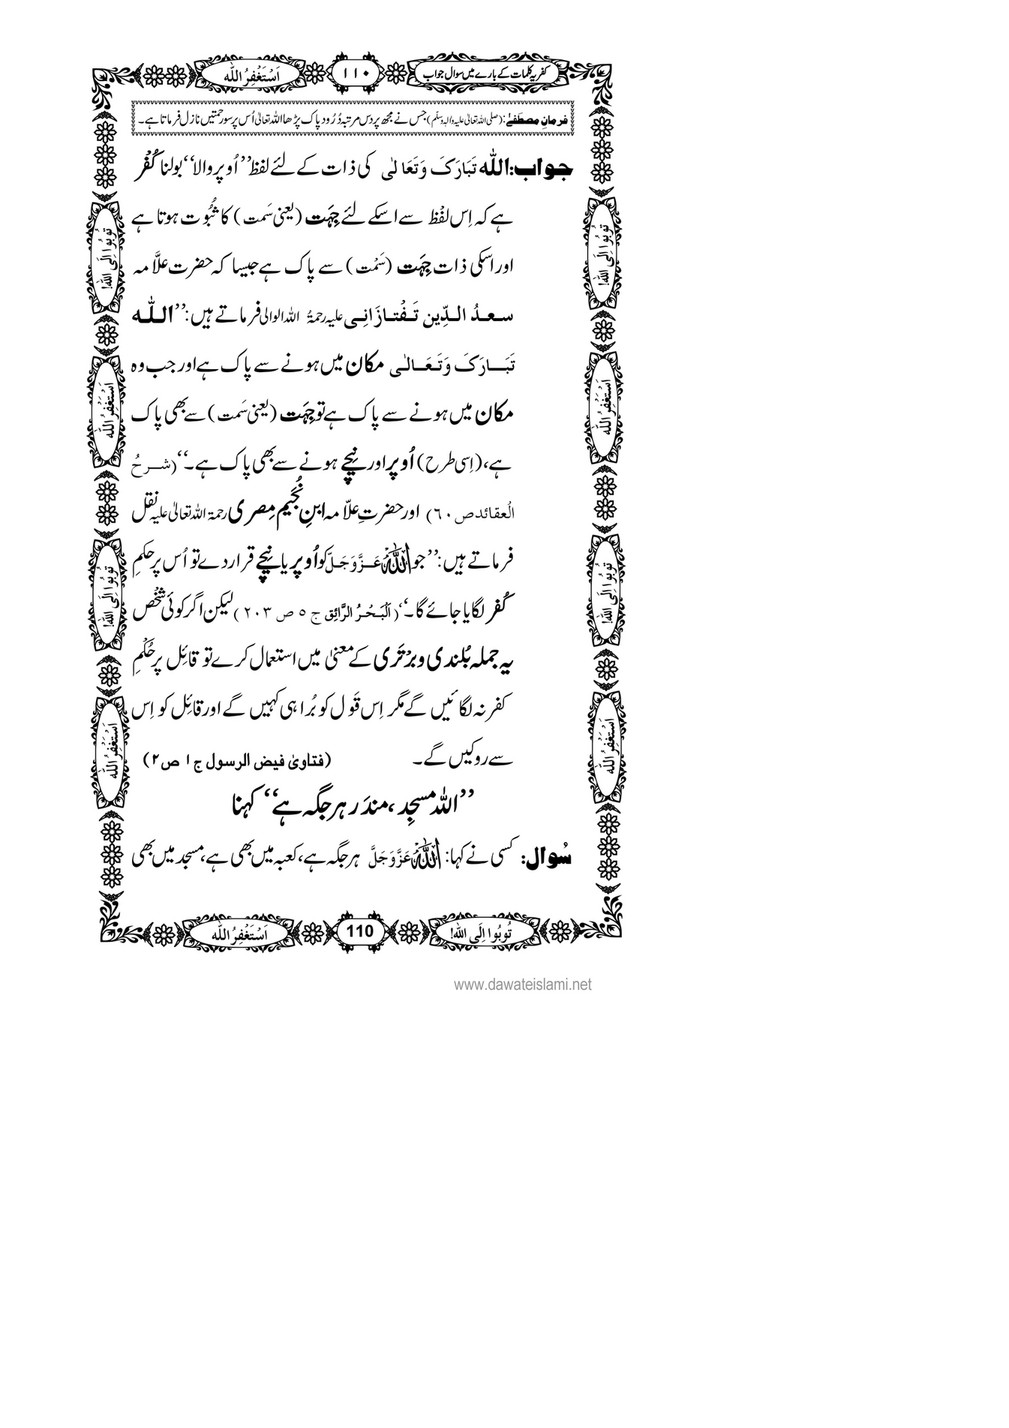 کفریہ کلمات کے بارے میں سوال جواب
۱۱۰
اَسْتَغْفِرُ اللہ
فرمانِ مصطفےٰ: (صلی اللہ تعالیٰ علیہ والہ وسلم) جس نے مجھ پر دس مرتبہ دُرُود پاک پڑھا اللہ تعالیٰ اُس پر سو رحمتیں نازل فرماتا ہے۔
جواب: اللہ تَبَارَکَ وَتَعَالٰی کی ذات کے لئے لفظ ’’اُوپر والا‘‘ بولنا کُفْر
ہے کہ اِس لفْظ سے اسکے لئے جِہَت (یعنی سَمت) کا ثُبُوت ہوتا ہے
اور اسکی ذات جِہَت (سَمْت) سے پاک ہے جیسا کہ حضرت علّامہ
سعدُ الدِّین تَفْتازَانِی علیہ رحمۃُ اللہ الوالی فرماتے ہیں: ’’اللہ
تَبَارَکَ وَتَعَالٰی مکان میں ہونے سے پاک ہے اور جب وہ
مکان میں ہونے سے پاک ہے تو جِہَت (یعنی سَمت) سے بھی پاک
ہے، (اِسی طرح) اُوپر اور نیچے ہونے سے بھی پاک ہے۔‘‘ (شرحُ
العقائد ص ۶۰) اور حضرتِ علاّمہ ابنِ نُجَیم مِصری رحمۃ اللہ تعالیٰ علیہ نقل
فرماتے ہیں: ’’جو اللہ عَزَّوَجَلَّ کو اُوپر یا نیچے قرار دے تو اُس پر حکمِ
کُفر لگایا جائے گا۔‘‘ (اَلْبَحْرُ الرَّائِق ج ۵ ص ۲۰۳) لیکن اگر کوئی شخص
یہ جملہ بُلندی و بَرْتَری کے معنیٰ میں استعمال کرے تو قائِل پر حُکْمِ
کفر نہ لگائیں گے مگر اِس قَول کو بُرا ہی کہیں گے اور قائِل کو اِس
سے روکیں گے۔ (فتاویٰ فیض الرسول ج ۱ ص ۲)
’’اللہ مسجِد، مندَر ہر جگہ ہے‘‘ کہنا
سُوال: کسی نے کہا: اللہ عَزَّوَجَلَّ ہر جگہ ہے، کعبہ میں بھی ہے، مسجد میں بھی
تُوبُوا اِلَی اللہ!
تُوبُوا اِلَی اللہ!
اَسْتَغْفِرُ اللہ
اَسْتَغْفِرُ اللہ
تُوبُوا اِلَی اللہ!
تُوبُوا اِلَی اللہ!
اَسْتَغْفِرُ اللہ
اَسْتَغْفِرُ اللہ
تُوبُوا اِلَی اللہ!
110
اَسْتَغْفِرُ اللہ
www.dawateislami.net